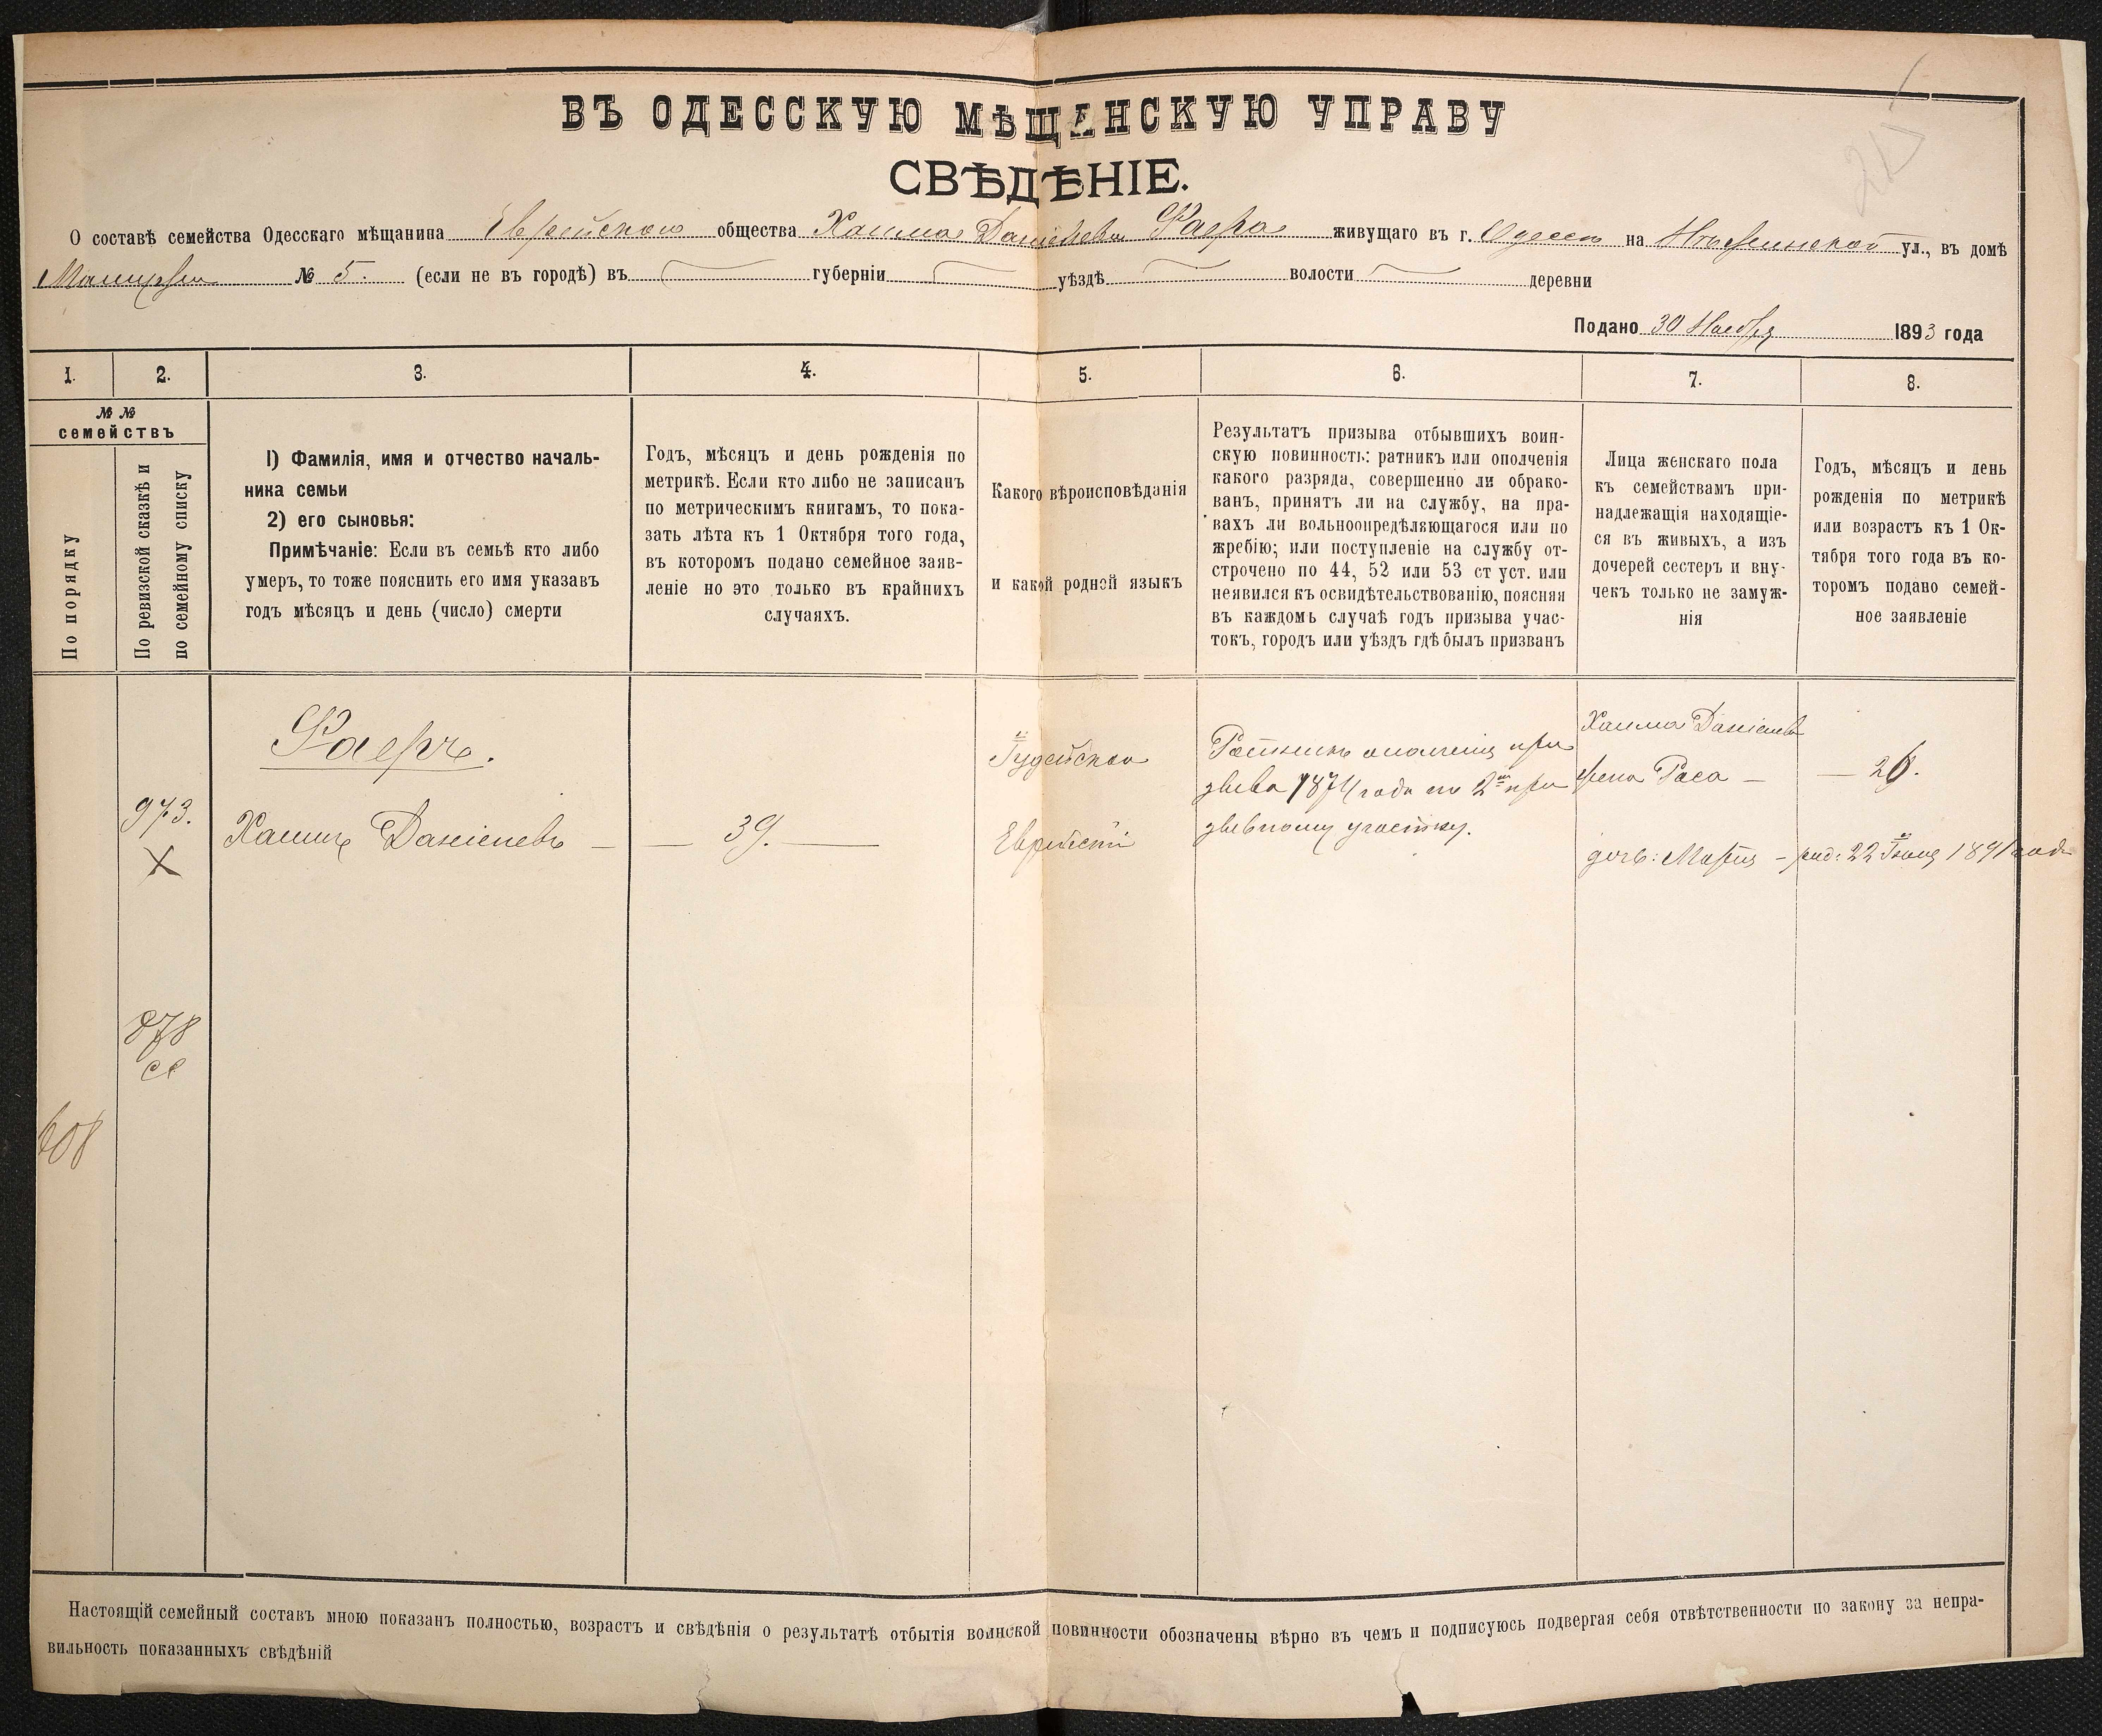 ВЪ ОДЕССКУЮ МѢЩАНСКУЮ УПРАВУ
СВѢДѢНІЕ.
О составѣ семейства Одесскаго мѣщанина Еврейскаго общества Хаима Даніелева Фаера живущаго въ г. Одессѣ на ул., въ домѣ
№ 5. (если не въ городѣ) въ губерніи уѣздѣ волости деревни
Подано 30 Ноября 1893 года
1. 2. 3. 4. 5. 6. 7. 8.
№ №
семействъ
По порядку
По ревизской сказкѣ и
по семейному списку
1) Фамилія, имя и отчество началь-
ника семьи
2) его сыновья:
Примѣчаніе: Если въ семьѣ кто либо
умеръ, то тоже пояснить его имя указавъ
годъ мѣсяцъ и день (число) смерти
Годъ, мѣсяцъ и день рожденія по
метрикѣ. Если кто либо не записанъ
по метрическимъ книгамъ, то пока-
зать лѣта къ 1 Октября того года,
въ которомъ подано семейное заяв-
леніе но это только въ крайнихъ
случаяхъ.
Какого вѣроисповѣданія
и какой родной языкъ
Результатъ призыва отбывшихъ воин-
скую повинность: ратникъ или ополченія
какого разряда, совершенно ли обрако-
ванъ, принятъ ли на службу, на пра-
вахъ ли вольноопредѣляющагося или по
жребію; или поступленіе на службу от-
строчено по 44, 52 или 53 ст уст. или
неявился къ освидѣтельствованію, поясняя
въ каждомъ случаѣ годъ призыва учас-
токъ, городъ или уѣздъ гдѣ былъ призванъ
Лица женскаго пола
къ семействамъ при-
надлежащія находящіе-
ся въ живыхъ, а изъ
дочерей сестеръ и вну-
чекъ только не замуж-
нія
Годъ, мѣсяцъ и день
рожденія по метрикѣ
или возрастъ къ 1 Ок-
тября того года въ ко-
торомъ подано семей-
ное заявленіе
608
973.
X
878
сс
Фаеръ.
Хаимъ Даніелевъ —
— 39. —
Іудейское
Еврейскій
Ратникъ ополченія при
зыва 1874 года по 2му при
зывному участку.
Хаима Даніелев
жена Раса —
дочь: Марія —
— 26.
род: 22 Іюня 1891 года
Настоящій семейный составъ мною показанъ полностью, возрастъ и свѣдѣнія о результатѣ отбытія воинской повинности обозначены вѣрно въ чемъ и подписуюсь подвергая себя отвѣтственности по закону за непра-
вильность показанныхъ свѣдѣній